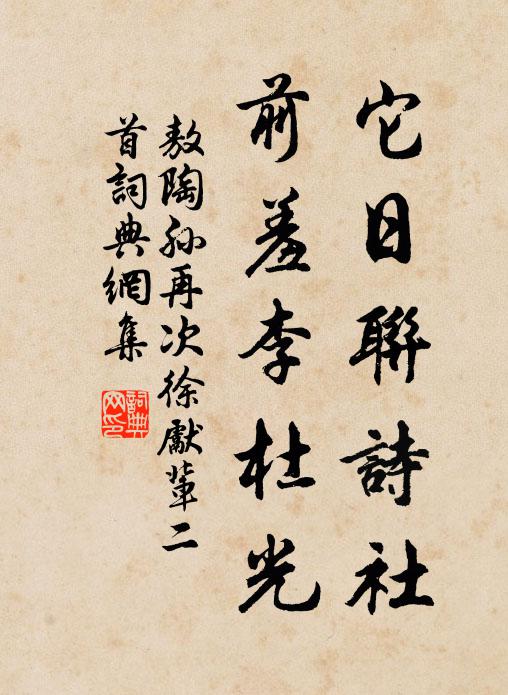 它日聯詩社
前羞李杜光
敖陶孫再次徐獻軰二
首詞典網集
詞典
网印